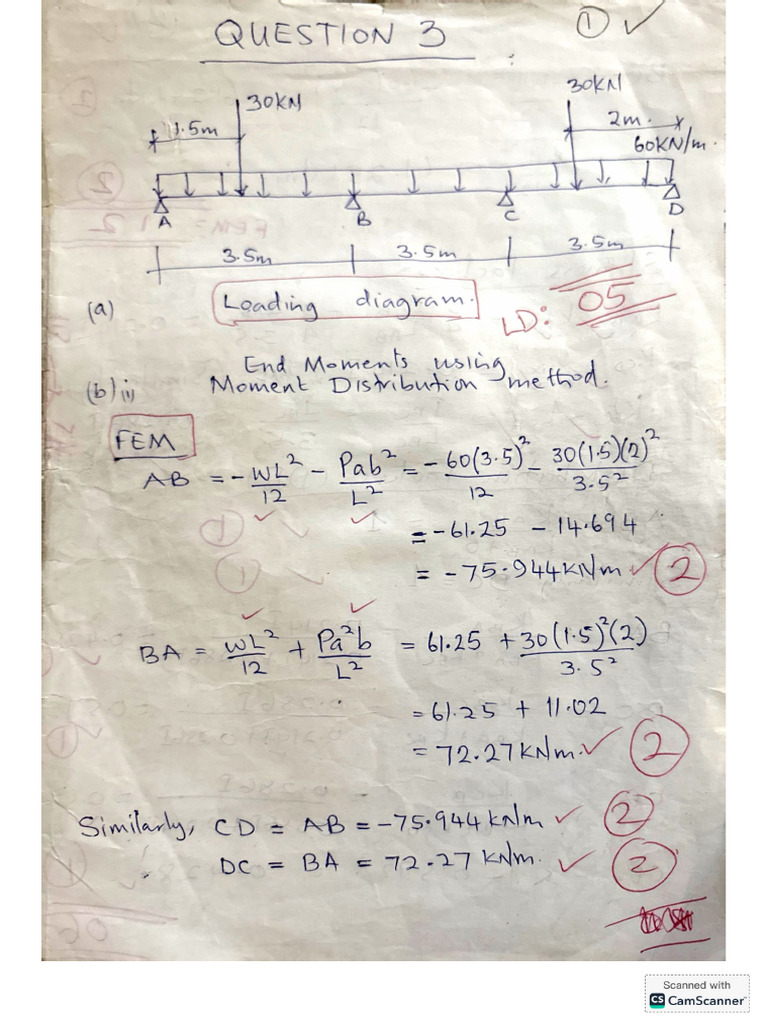 QUESTION 3
① ✓
30KN
30KN
1.5m
2m.
60KN/m.
A B C D
3.5m 3.5m 3.5m
(a) Loading diagram.
LD: 05
(b) ii) End Moments using
Moment Distribution method.
FEM
AB = - WL²/12 - Pab²/L² = - 60(3.5)²/12 - 30(1.5)(2)²/3.5²
= -61.25 - 14.694
= -75.944KNm ✓ ②
BA = WL²/12 + Pa²b/L² = 61.25 + 30(1.5)²(2)/3.5²
= 61.25 + 11.02
= 72.27KNm. ✓ ②
Similarly, CD = AB = -75.944 kNm ✓ ②
DC = BA = 72.27 kNm. ✓ ②
Scanned with
CS CamScanner